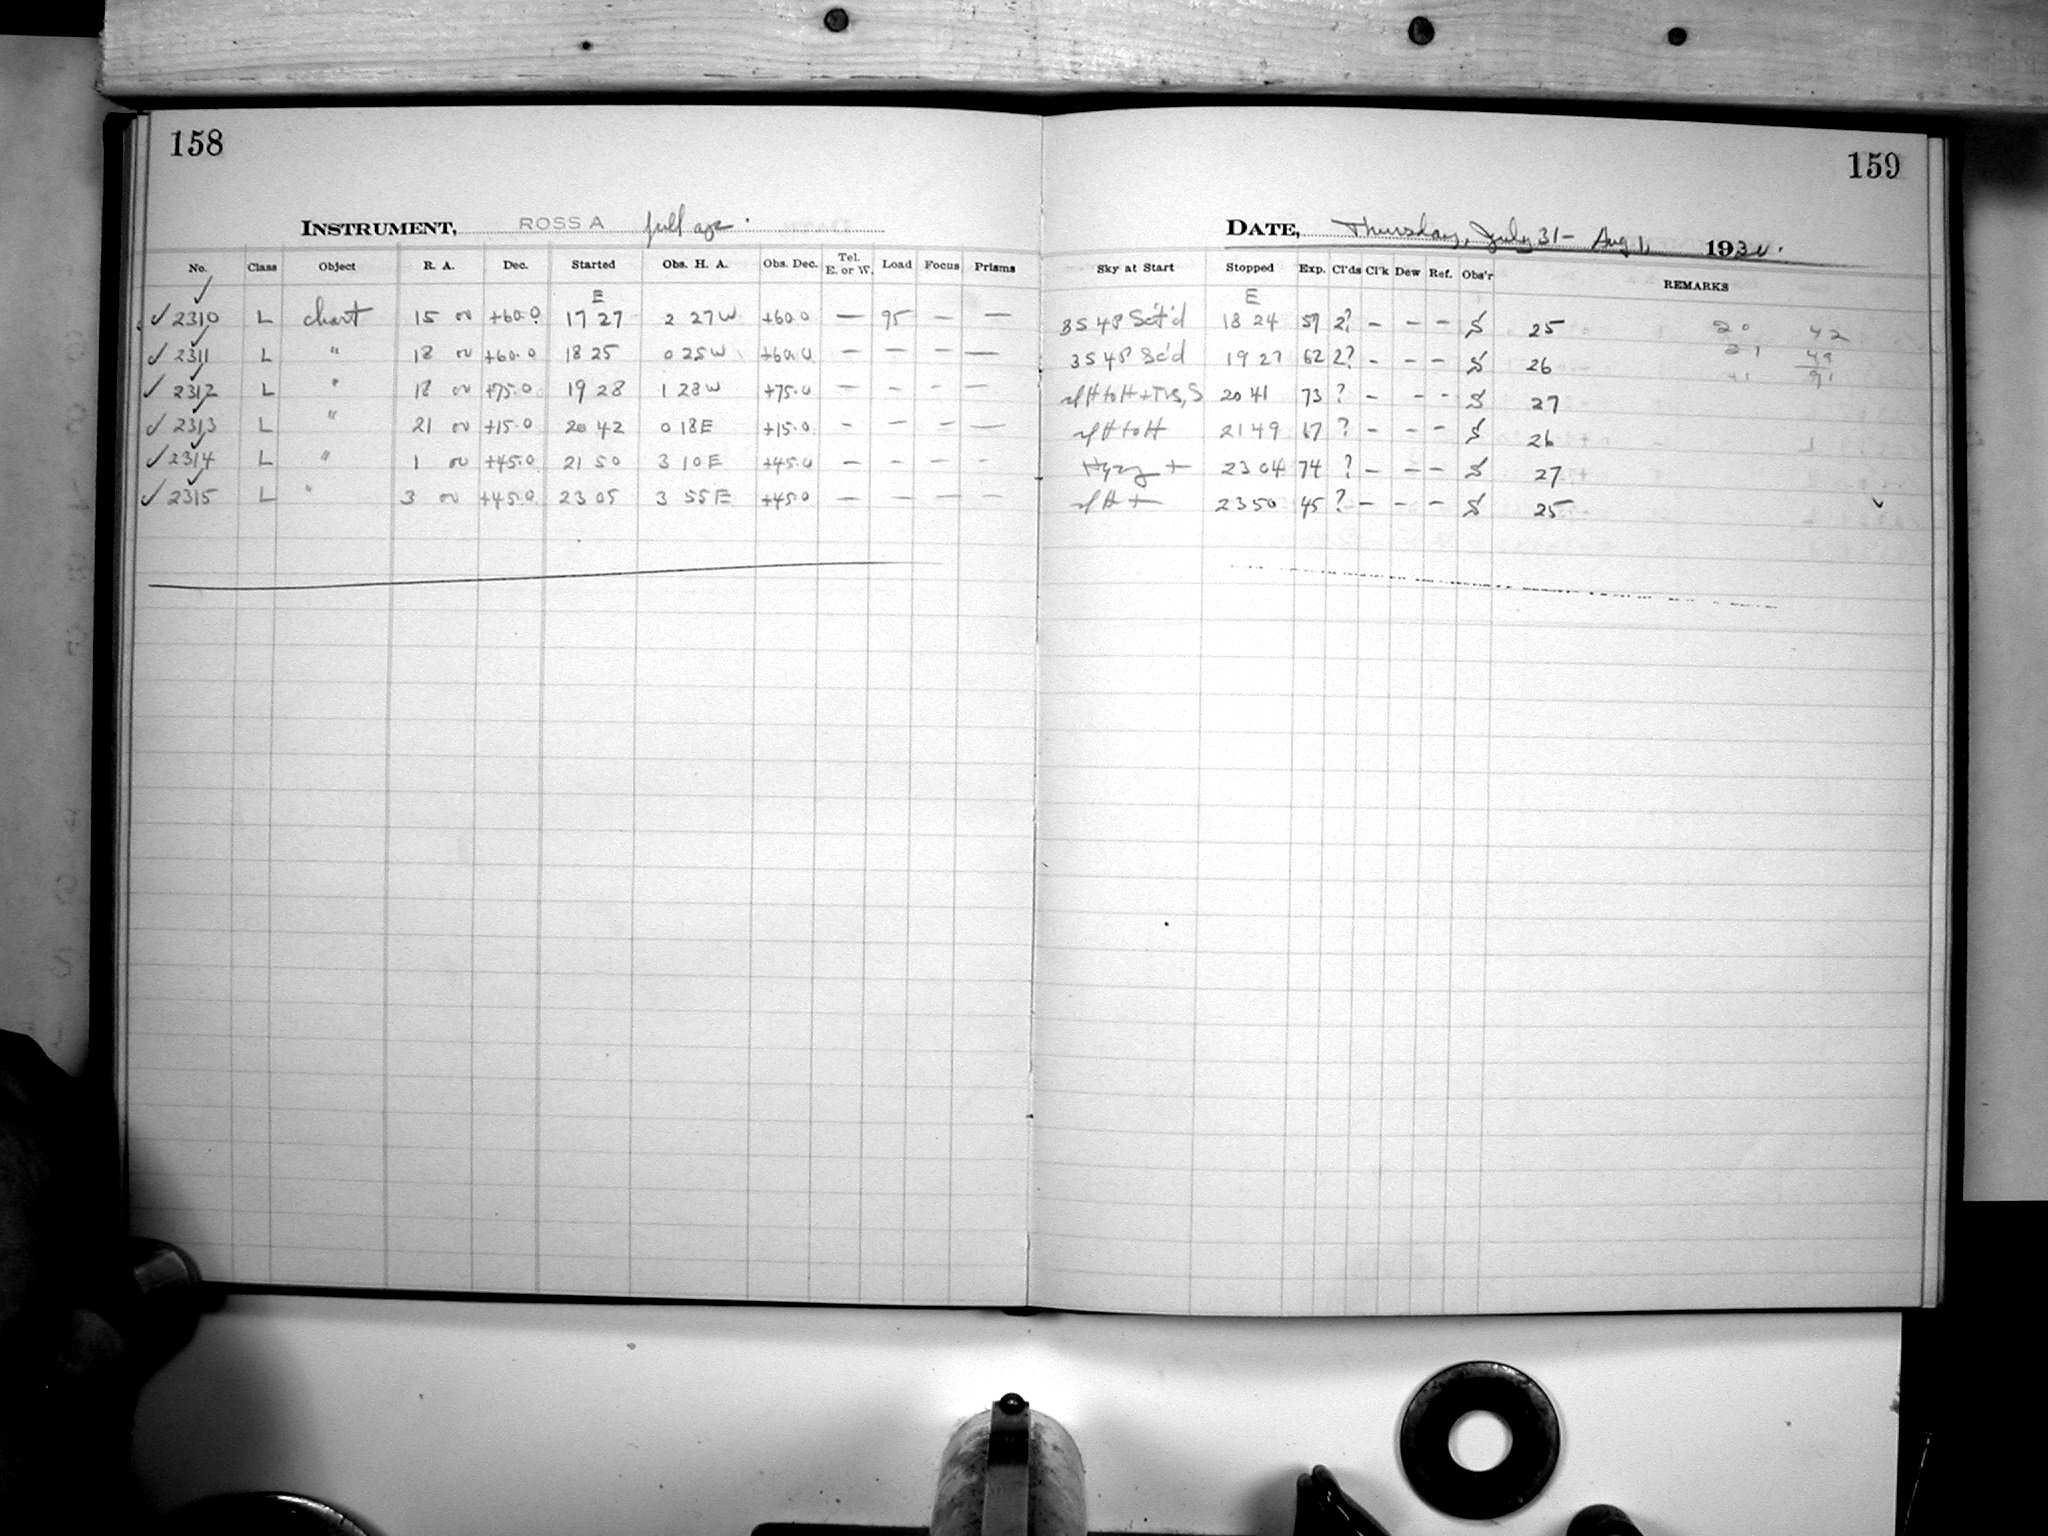 158
INSTRUMENT, ROSS A full
No. Class Object R. A. Dec. Started Obs. H. A. Obs. Dec. Tel. E. or W. Load Focus Prisms
E
✓ 2310 L chart 15 00 +60.0 17 27 2 27 W +60.0 — 95 — —
✓ 2311 L " 18 00 +60.0 18 25 0 25 W +60.0 — — — —
✓ 2312 L " 18 00 +75.0 19 28 1 28 W +75.0 — — — —
✓ 2313 L " 21 00 +15.0 20 42 0 18 E +15.0 — — — —
✓ 2314 L " 1 00 +45.0 21 50 3 10 E +45.0 — — — —
✓ 2315 L " 3 00 +45.0 23 05 3 55 E +45.0 — — — —
159
DATE, Thursday, July 31 - Aug 1, 1930.
Sky at Start Stopped Exp. Cl'ds Cl'k Dew Ref. Obs'r REMARKS
E
Sct'd 18 24 57 2? — — — S 25
Sc'd 19 27 62 2? — — — S 26
20 41 73 ? — — — S 27
21 49 67 ? — — — S 26
Hyzy + 23 04 74 ? — — — S 27
23 50 45 ? — — — S 25
20 42
21 49
41 91